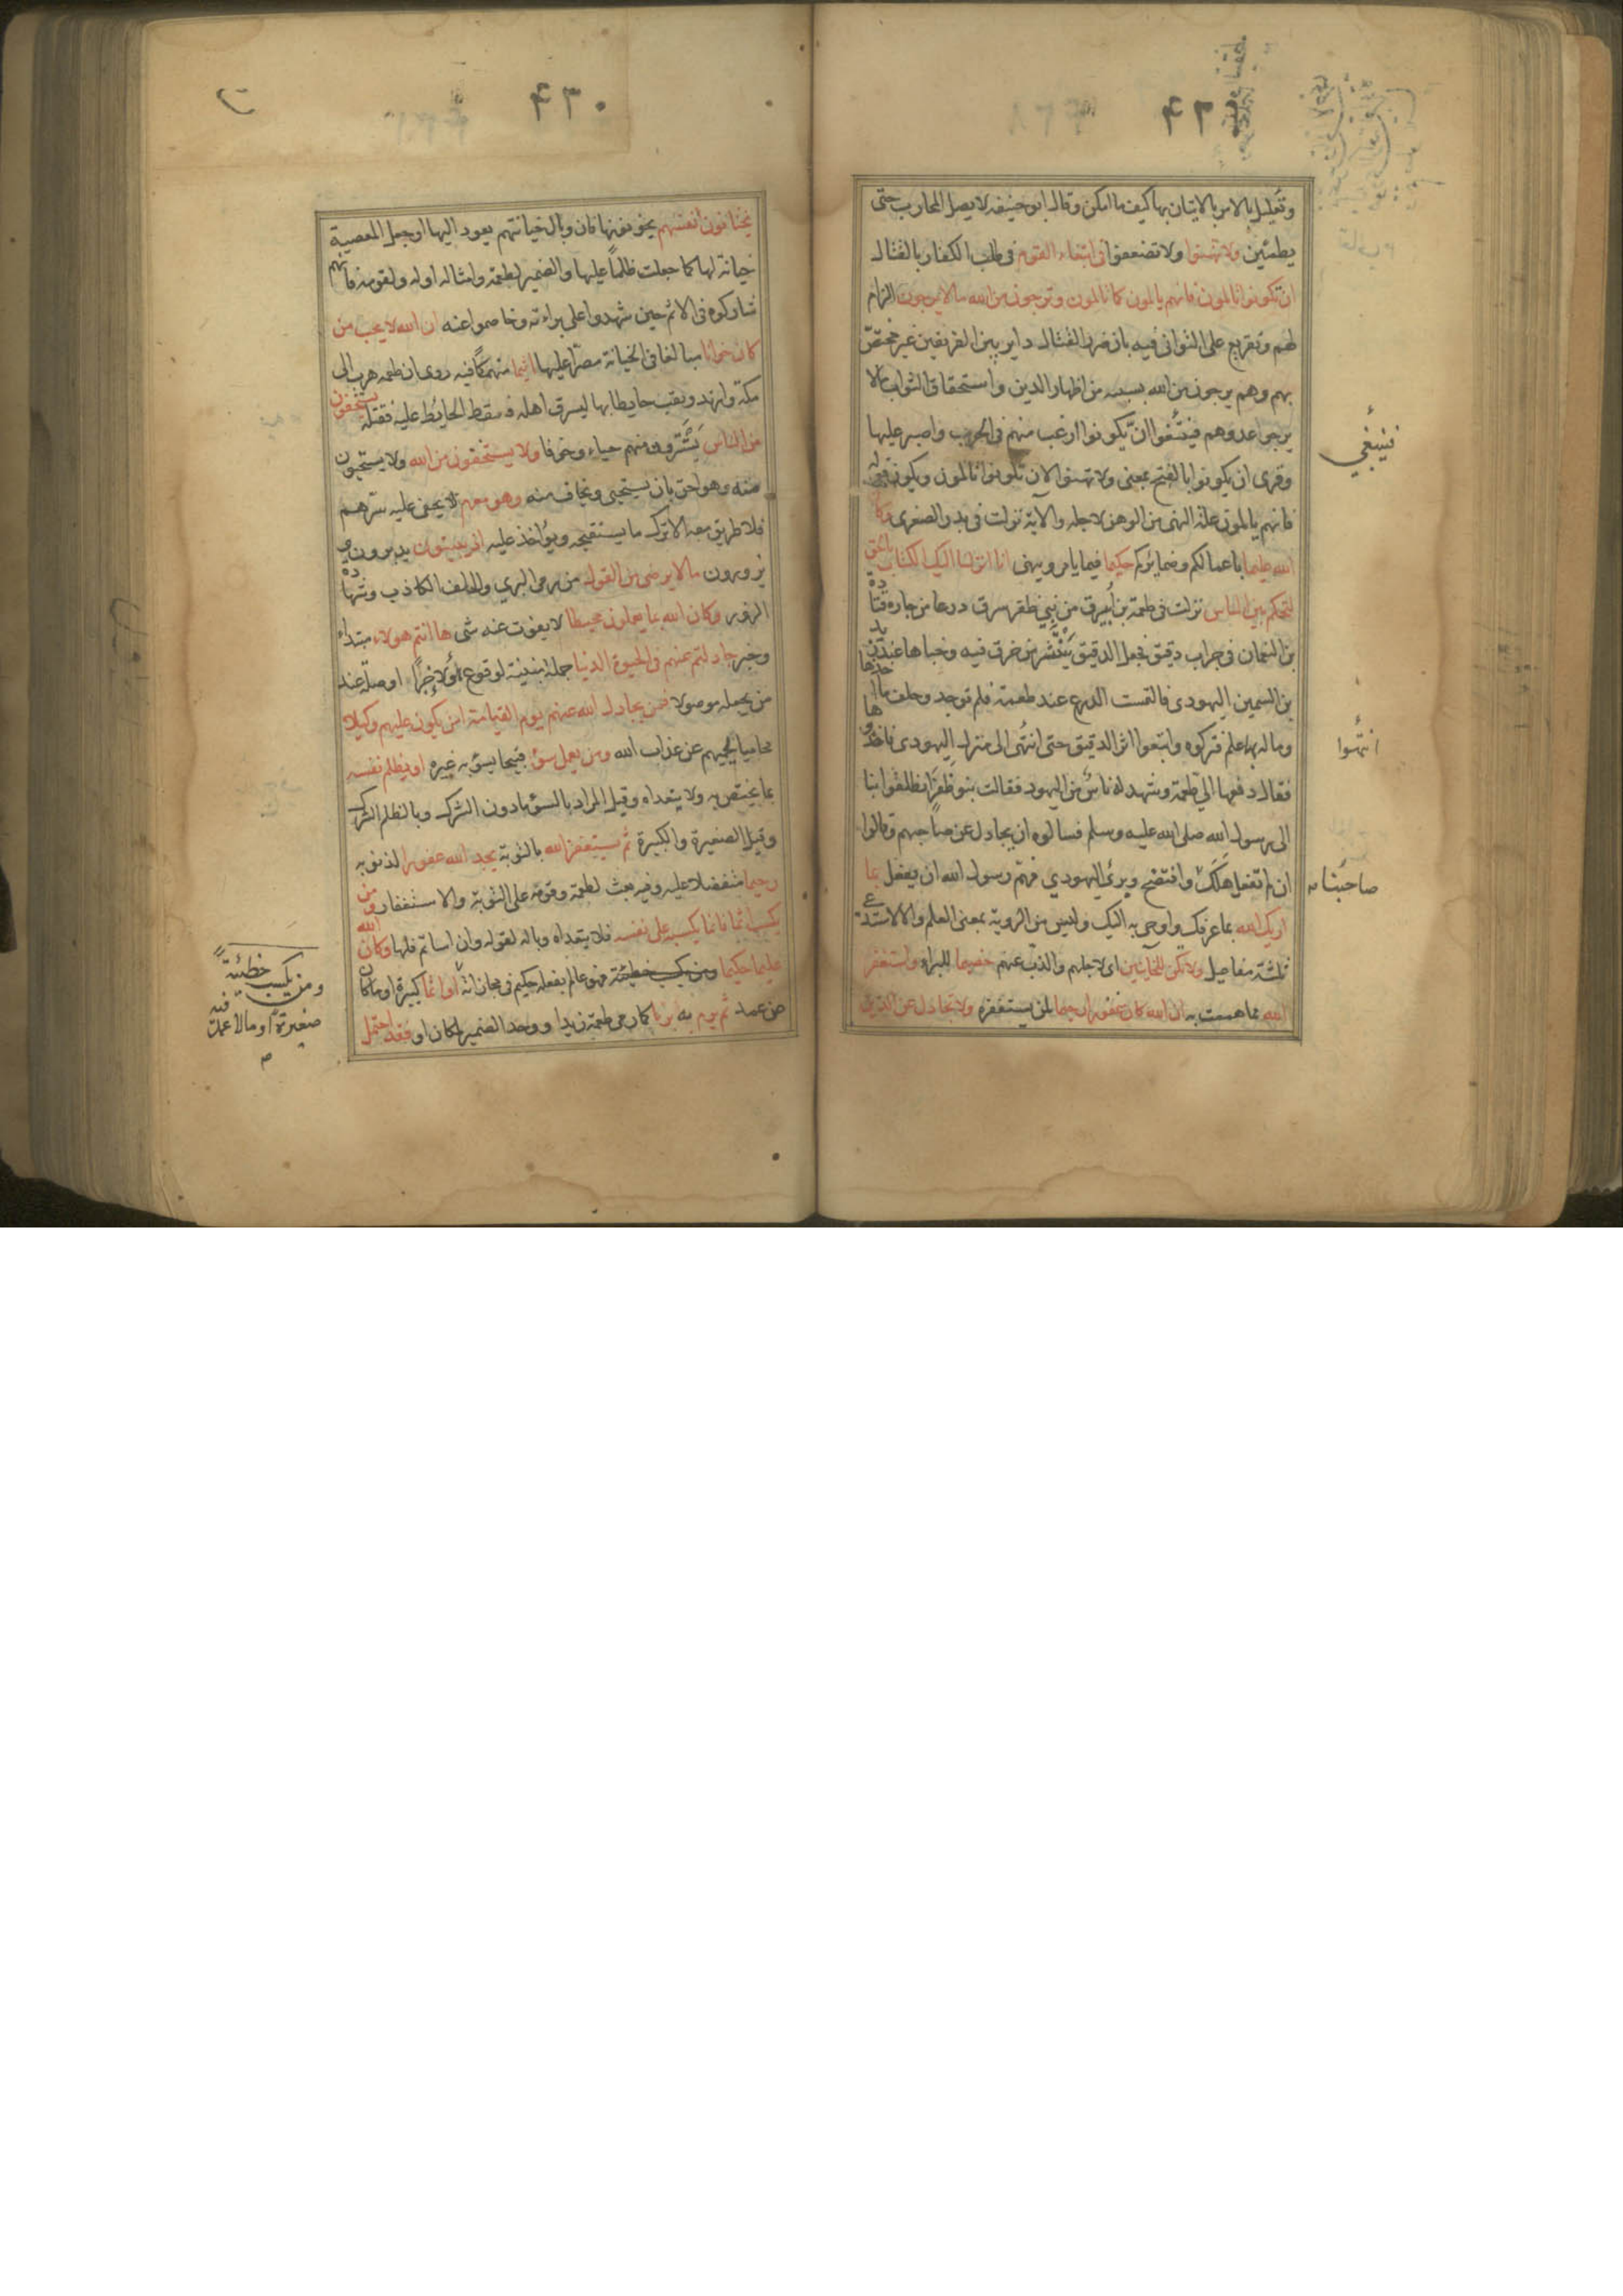 وتعليل بالامر بالاتيان بها كيف ما امكن وقال ابو حنيفه لا يصل المحارب حتى
يطمئين ولا تهنوا ولا تضعفوا فى ابتغاء القوم فى طلب الكفار بالقتال
ان تكونوا تالمون فانهم يالمون كما تالمون وترجون من الله ما لا يرجون الزام
لهم وتقريع على التوانى فيه بان ضرر القتال داير بين الفريقين غير مختص
بهم وهم يرجون من الله بسببه من اظهار الدين واستحقاق الثواب ما لا
يرجوا عدوهم فينبغوا ان يكونوا ارغب منهم فى الحرب واصبر عليها
وقرى ان يكونوا بالفتح بمعنى ولا تهنوا لان تكونوا تالمون ويكون قوله
فانهم يالمون علة النهى من الوهن لاجله والآية نزلت فى بدر الصغرى وكان
الله عليما باعمالكم وضمايركم حكيما فيما يامر وينهى انا انزلنا اليك الكتاب بالحق
لتحكم بين الناس نزلت فى طعمة بن ابيرق من بنى ظفر سرق درعا من جاره قتاده
بن النعمان فى جراب دقيق فجعل الدقيق ينتشر من خرق فيه وخباها عند زيد
بن السمين اليهودى فالتمست الدرع عند طعمة فلم توجد وحلف ما اخذها
وماله بها علم فتركوه واتبعوا اثر الدقيق حتى انتهى الى منزل اليهودى فاخذوها
فقال دفعها الي طعمة وشهد له ناس من اليهود فقالت بنو ظفر انطلقوا بنا
الى رسول الله صلى الله عليه وسلم فسالوه ان يجادل عن صاحبهم وقالوا
ان لم تفعل هلك وافتضح وبرئ اليهودي فهم رسول الله ان يفعل بما
اريك الله بما عرفك واوحى به اليك وليس من الروية بمعنى العلم والا لاستدعى
ثلثة مفاعيل ولا تكن للخاينين اى لاجلهم والذب عنهم خصيما للبراء واستغفر
الله بما هممت به ان الله كان غفورا رحيما لمن يستغفره ولا تجادل عن الذين
فينبغي
انتهوا
صاحبنا
۴۳۰
يختانون انفسهم يخونونها فان وبال خيانتهم يعود اليها او جعل المعصية
خيانة لها كما جعلت ظلماً عليها والضمير لطعمه وامثاله او له ولقومه فانهم
شاركوه فى الاثم حين شهدوا على براءته وخاصموا عنه ان الله لا يحب من
كان خوانا مبالغا فى الخيانة مصرا عليها اثيما منهمكاً فيه روى ان طعمه هرب الى
مكة وارتد ونقب حايطا بها ليسرق اهله فسقط الحايط عليه فقتله يستخفون
من الناس يستترون منهم حياء وخوفا ولا يستخفون من الله ولا يستحيون
منه وهو احق بان يستحيى ويخاف منه وهو معهم لا يخفى عليه سرهم
فلا طريق معه الا ترك ما يستقبحه ويؤاخذ عليه اذ يبيتون يدبرون و
يزورون ما لا يرضى من القول من رمى البري والحلف الكاذب وشهادة
الزور وكان الله بما يعملون محيطا لا يفوت عنه شى ها انتم هولاء مبتداء
وخبر جادلتم عنهم فى الحيوة الدنيا جملة مبينة لوقوع اولاء خبراً او صلة عند
من يجعله موصولا فمن يجادل الله عنهم يوم القيامة امن يكون عليهم وكيلا
محاميا يحميهم عن عذاب الله ومن يعمل سؤا قبيحا يسؤ به غيره او يظلم نفسه
بما يختص به ولا يتعداه وقيل المراد بالسؤ مادون الشرك وبالظلم الشرك
وقيل الصغيرة والكبيرة ثم يستغفر الله بالتوبة يجد الله غفورا لذنوبه
رحيما متفضلا عليه وفيه حث لطعمة وقومه على التوبة والاستغفار ومن
يكسب اثما فانما يكسبه على نفسه فلا يتعداه وباله لقوله وان اساتم فلها وكان الله
عليما حكيما ومن يكسب خطيئة فهو عالم بفعله حكيم فى مجازاته او اثما كبيرة او ما كان
عن عمد ثم يرم به بريا كما رمى طعمة زيدا ووحد الضمير لمكان او فقد احتمل
ومن يكسب خطيئة
صغيرة او ما لا عمد فيه